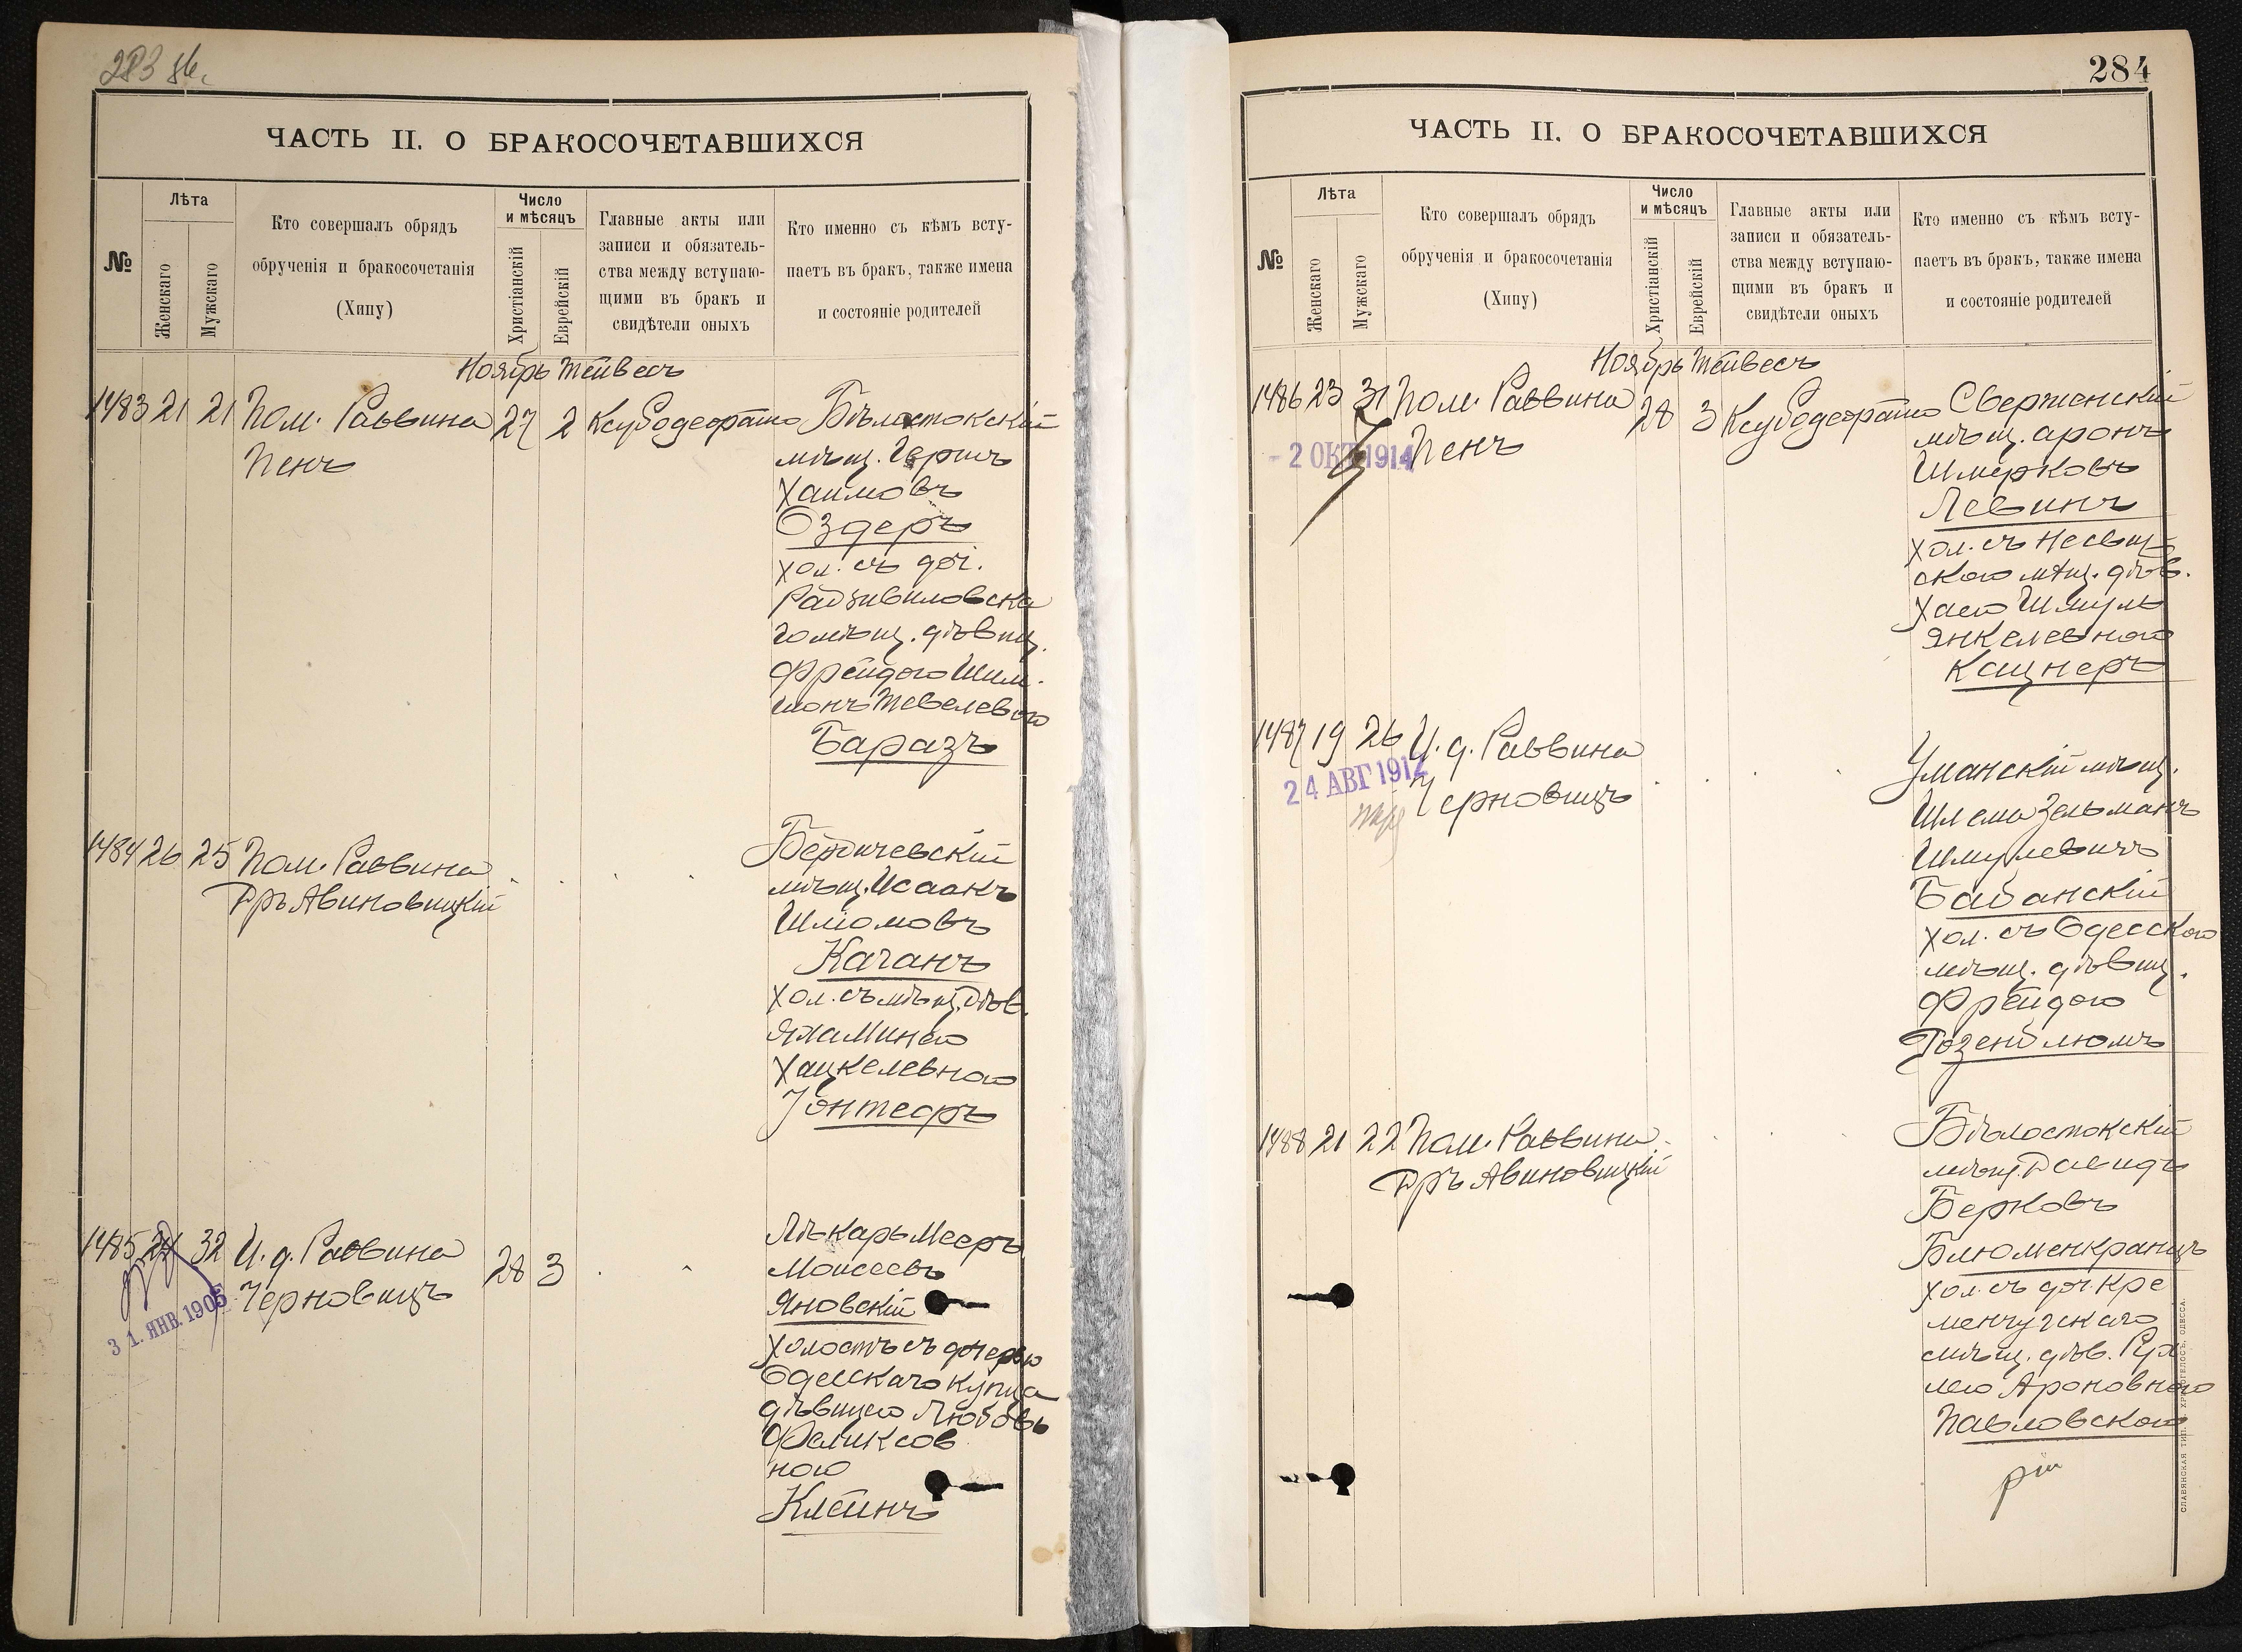 283 об.
ЧАСТЬ II. О БРАКОСОЧЕТАВШИХСЯ
№
Лѣта
Женскаго
Мужскаго
Кто совершалъ обрядъ
обрученія и бракосочетанія
(Хипу)
Число
и мѣсяцъ
Христіанскій
Еврейскій
Главные акты или
записи и обязатель-
ства между вступаю-
щими въ бракъ и
свидѣтели оныхъ
Кто именно съ кѣмъ всту-
паетъ въ бракъ, также имена
и состояніе родителей
Ноябрь Тейвесъ
1483 21 21 Пом. Раввина 27 2 Ксубодеорато Бѣлостокскій
Пенъ
мѣщ. Гершъ
Хаимовъ
Оздеръ
хол. съ доч.
Радзивиловска
го мѣщ. дѣвиц.
Фрейдою Шим-
шонъ Тевелевою
Баразъ
1484 26 25 Пом. Раввина
Д-ръ Авиновицкій
Бердичевскій
мѣщ. Исаакъ
Шліомовъ
Каганъ
хол. съ мѣщ. дѣв.
Хацкелевною
Гонтеоръ
1485 24 32 И. д. Раввина 28 3
Черновицъ
31. ЯНВ. 1905
Лѣкарь Мееръ
Моисеевъ
Яновскій
холостъ съ дочерью
Одесскаго купца
дѣвицею Любовь
Феликсов
ною
Клейнъ
284
ЧАСТЬ II. О БРАКОСОЧЕТАВШИХСЯ
№
Лѣта
Женскаго
Мужскаго
Кто совершалъ обрядъ
обрученія и бракосочетанія
(Хипу)
Число
и мѣсяцъ
Христіанскій
Еврейскій
Главные акты или
записи и обязатель-
ства между вступаю-
щими въ бракъ и
свидѣтели оныхъ
Кто именно съ кѣмъ всту-
паетъ въ бракъ, также имена
и состояніе родителей
Ноябрь Тейвесъ
1486 23 31 Пом. Раввина 28 3 Ксубодеорато Сверженскій
Пенъ
- 2 ОКТ 1914
мѣщ. Аронъ
Шмерковъ
Левинъ
хол. съ Несвиж-
скою мѣщ. дѣв.
Хаею Шмуль
Янкелевною
Кацнеръ
1487 19 26 И. д. Раввина
Черновицъ
24 АВГ 1912
Уманскій мѣщ.
Шлема Зельманъ
Шмулевичъ
Бабанскій
хол. съ Одесскою
мѣщ. дѣвиц.
Фрейдою
Розенблюмъ
1488 21 22 Пом. Раввина
Д-ръ Авиновицкій
Бѣлостокскій
мѣщ. Давидъ
Берковъ
Блюменкранцъ
хол. съ доч. Кре
менчугскаго
мѣщ. дѣв. Рух
лею Ароновною
Павловскою
СЛАВЯНСКАЯ ТИП. Н. ХРИСОГЕЛОСЪ, ОДЕССА.